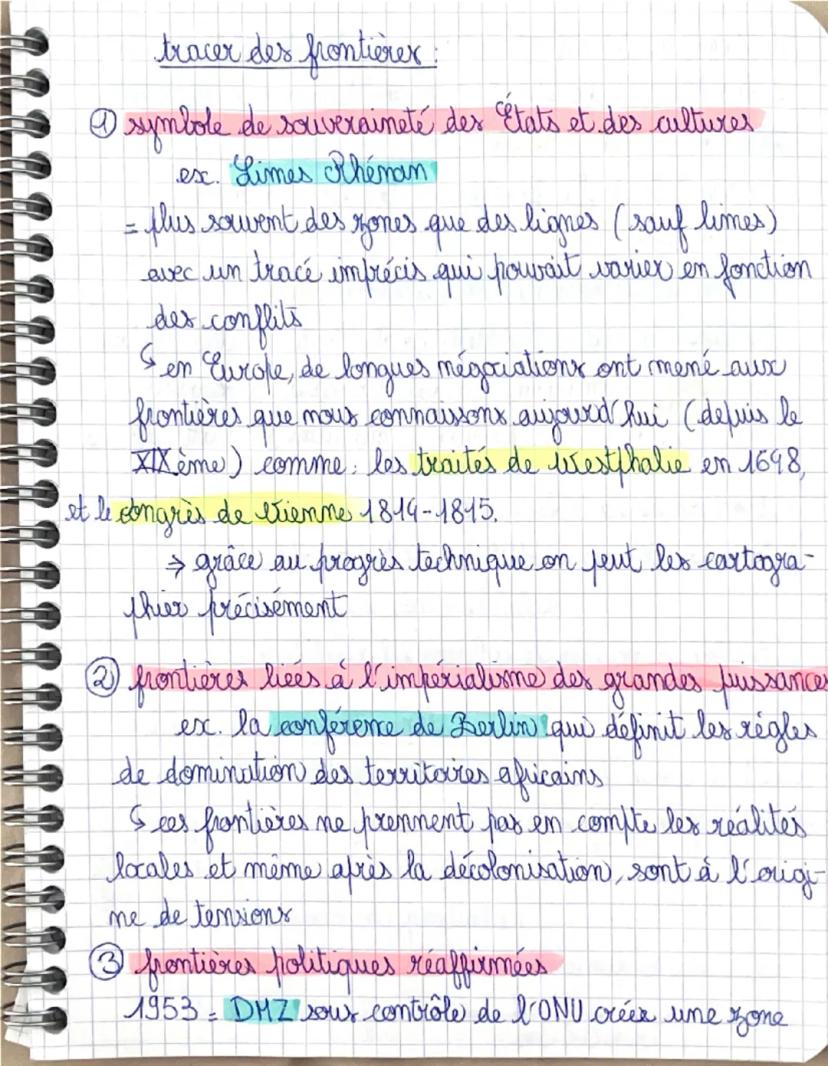 tracer des frontières :
① symbole de souveraineté des États et des cultures
ex. Limes Rhénan
= plus souvent des zones que des lignes (sauf limes)
avec un tracé imprécis qui pouvait varier en fonction
des conflits
↳ en Europe, de longues négociations ont mené aux
frontières que nous connaissons aujourd'hui (depuis le
XIXème) comme : les traités de Westphalie en 1648,
et le congrès de Vienne 1814-1815.
⇒ grâce au progrès technique on peut les cartogra-
phier précisément
② frontières liées à l'impérialisme des grandes puissances
ex. la conférence de Berlin qui définit les règles
de domination des territoires africains
↳ ces frontières ne prennent pas en compte les réalités
locales et même après la décolonisation, sont à l'origi-
ne de tensions
③ frontières politiques réaffirmées
1953 = DMZ sous contrôle de l'ONU créée une zone